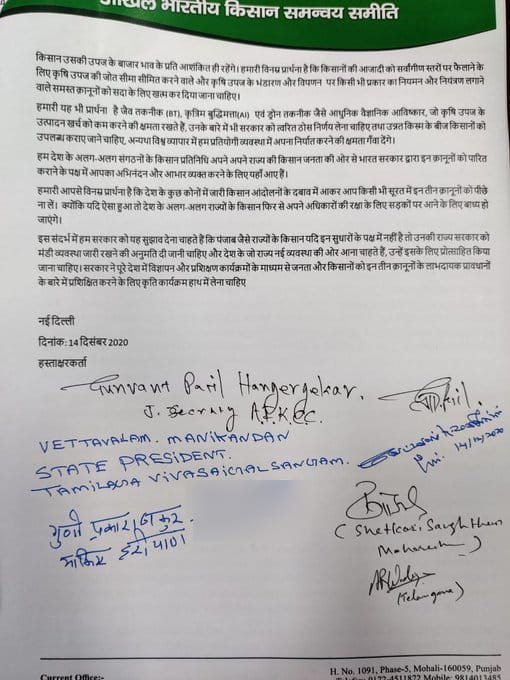 अखिल भारतीय किसान समन्वय समीति
किसान उसकी उपज के बाजार भाव के प्रति आशंकित ही रहेंगे। हमारी विनम्र प्रार्थना है कि किसानों की आजादी को सर्वांगीण स्तरों पर फैलाने के
लिए कृषि उपज की जोत सीमा सीमित करने वाले और कृषि उपज के भंडारण और विपणन पर किसी भी प्रकार का नियमन और नियंत्रण लगाने
वाले समस्त क़ानूनों को सदा के लिए खत्म कर दिया जाना चाहिए।
हमारी यह भी प्रार्थना है जैव तकनीक (BT), कृत्रिम बुद्धिमत्ता(AI) एवं ड्रोन तकनीक जैसे आधुनिक वैज्ञानिक आविष्कार, जो कृषि उपज के
उत्पादन खर्च को कम करने की क्षमता रखते हैं, उनके बारे में भी सरकार को त्वरित ठोस निर्णय लेना चाहिए तथा उन्नत किस्म के बीज किसानों को
उपलब्ध कराए जाने चाहिए, अन्यथा विश्व व्यापार में हम प्रतियोगी व्यवस्था में अपना निर्यात करने की क्षमता गँवा देंगे।
हम देश के अलग-अलग संगठनों के किसान प्रतिनिधि अपने अपने राज्य की किसान जनता की ओर से भारत सरकार द्वारा इन क़ानूनों को पारित
कराने के पक्ष में आपका अभिनंदन और आभार व्यक्त करने के लिए यहाँ आए हैं।
हमारी आपसे विनम्र प्रार्थना है कि देश के कुछ कोनों में जारी किसान आंदोलनों के दबाव में आकर आप किसी भी सूरत में इन तीन क़ानूनों को पीछे
ना लें। क्योंकि यदि ऐसा हुआ तो देश के अलग-अलग राज्यों के किसान फिर से अपने अधिकारों की रक्षा के लिए सड़कों पर आने के लिए बाध्य हो
जाएंगे।
इस संदर्भ में हम सरकार को यह सुझाव देना चाहते हैं कि पंजाब जैसे राज्यों के किसान यदि इन सुधारों के पक्ष में नहीं है तो उनकी राज्य सरकार को
मंडी व्यवस्था जारी रखने की अनुमति दी जानी चाहिए और देश के जो राज्य नई व्यवस्था की ओर आना चाहते हैं, उन्हें इसके लिए प्रोत्साहित किया
जाना चाहिए। सरकार ने पूरे देश में विज्ञापन और प्रशिक्षण कार्यक्रमों के माध्यम से जनता और किसानों को इन तीन क़ानूनों के लाभदायक प्रावधानों
के बारे में प्रशिक्षित करने के लिए कृति कार्यक्रम हाथ में लेना चाहिए
नई दिल्ली
दिनांक: 14 दिसंबर 2020
हस्ताक्षरकर्ता
Gunvant Patil Hangergekar.
J. Secretary A.I.K.C.C.
VETTAVALAM. MANIKANDAN
STATE PRESIDENT.
TAMILAGA VIVASAIGAL SANGAM.
14/12/2020
गुणी प्रकाश ठाकुर
हरियाणा
(Shetkari Sangh
)
(Telangana)
H. No. 1091, Phase-5, Mohali-160059, Punjab
Current Office:-
0172-4511872 Mobile: 9814013485